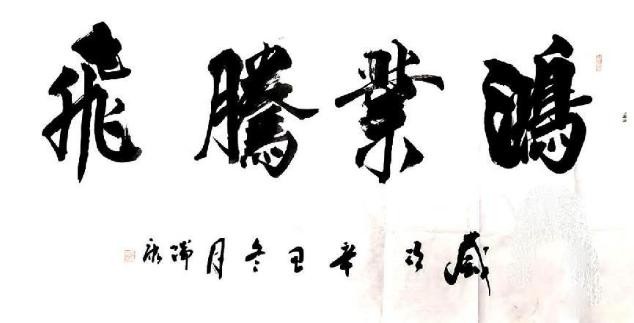 鴻業騰飛
歲次辛丑冬月瑞